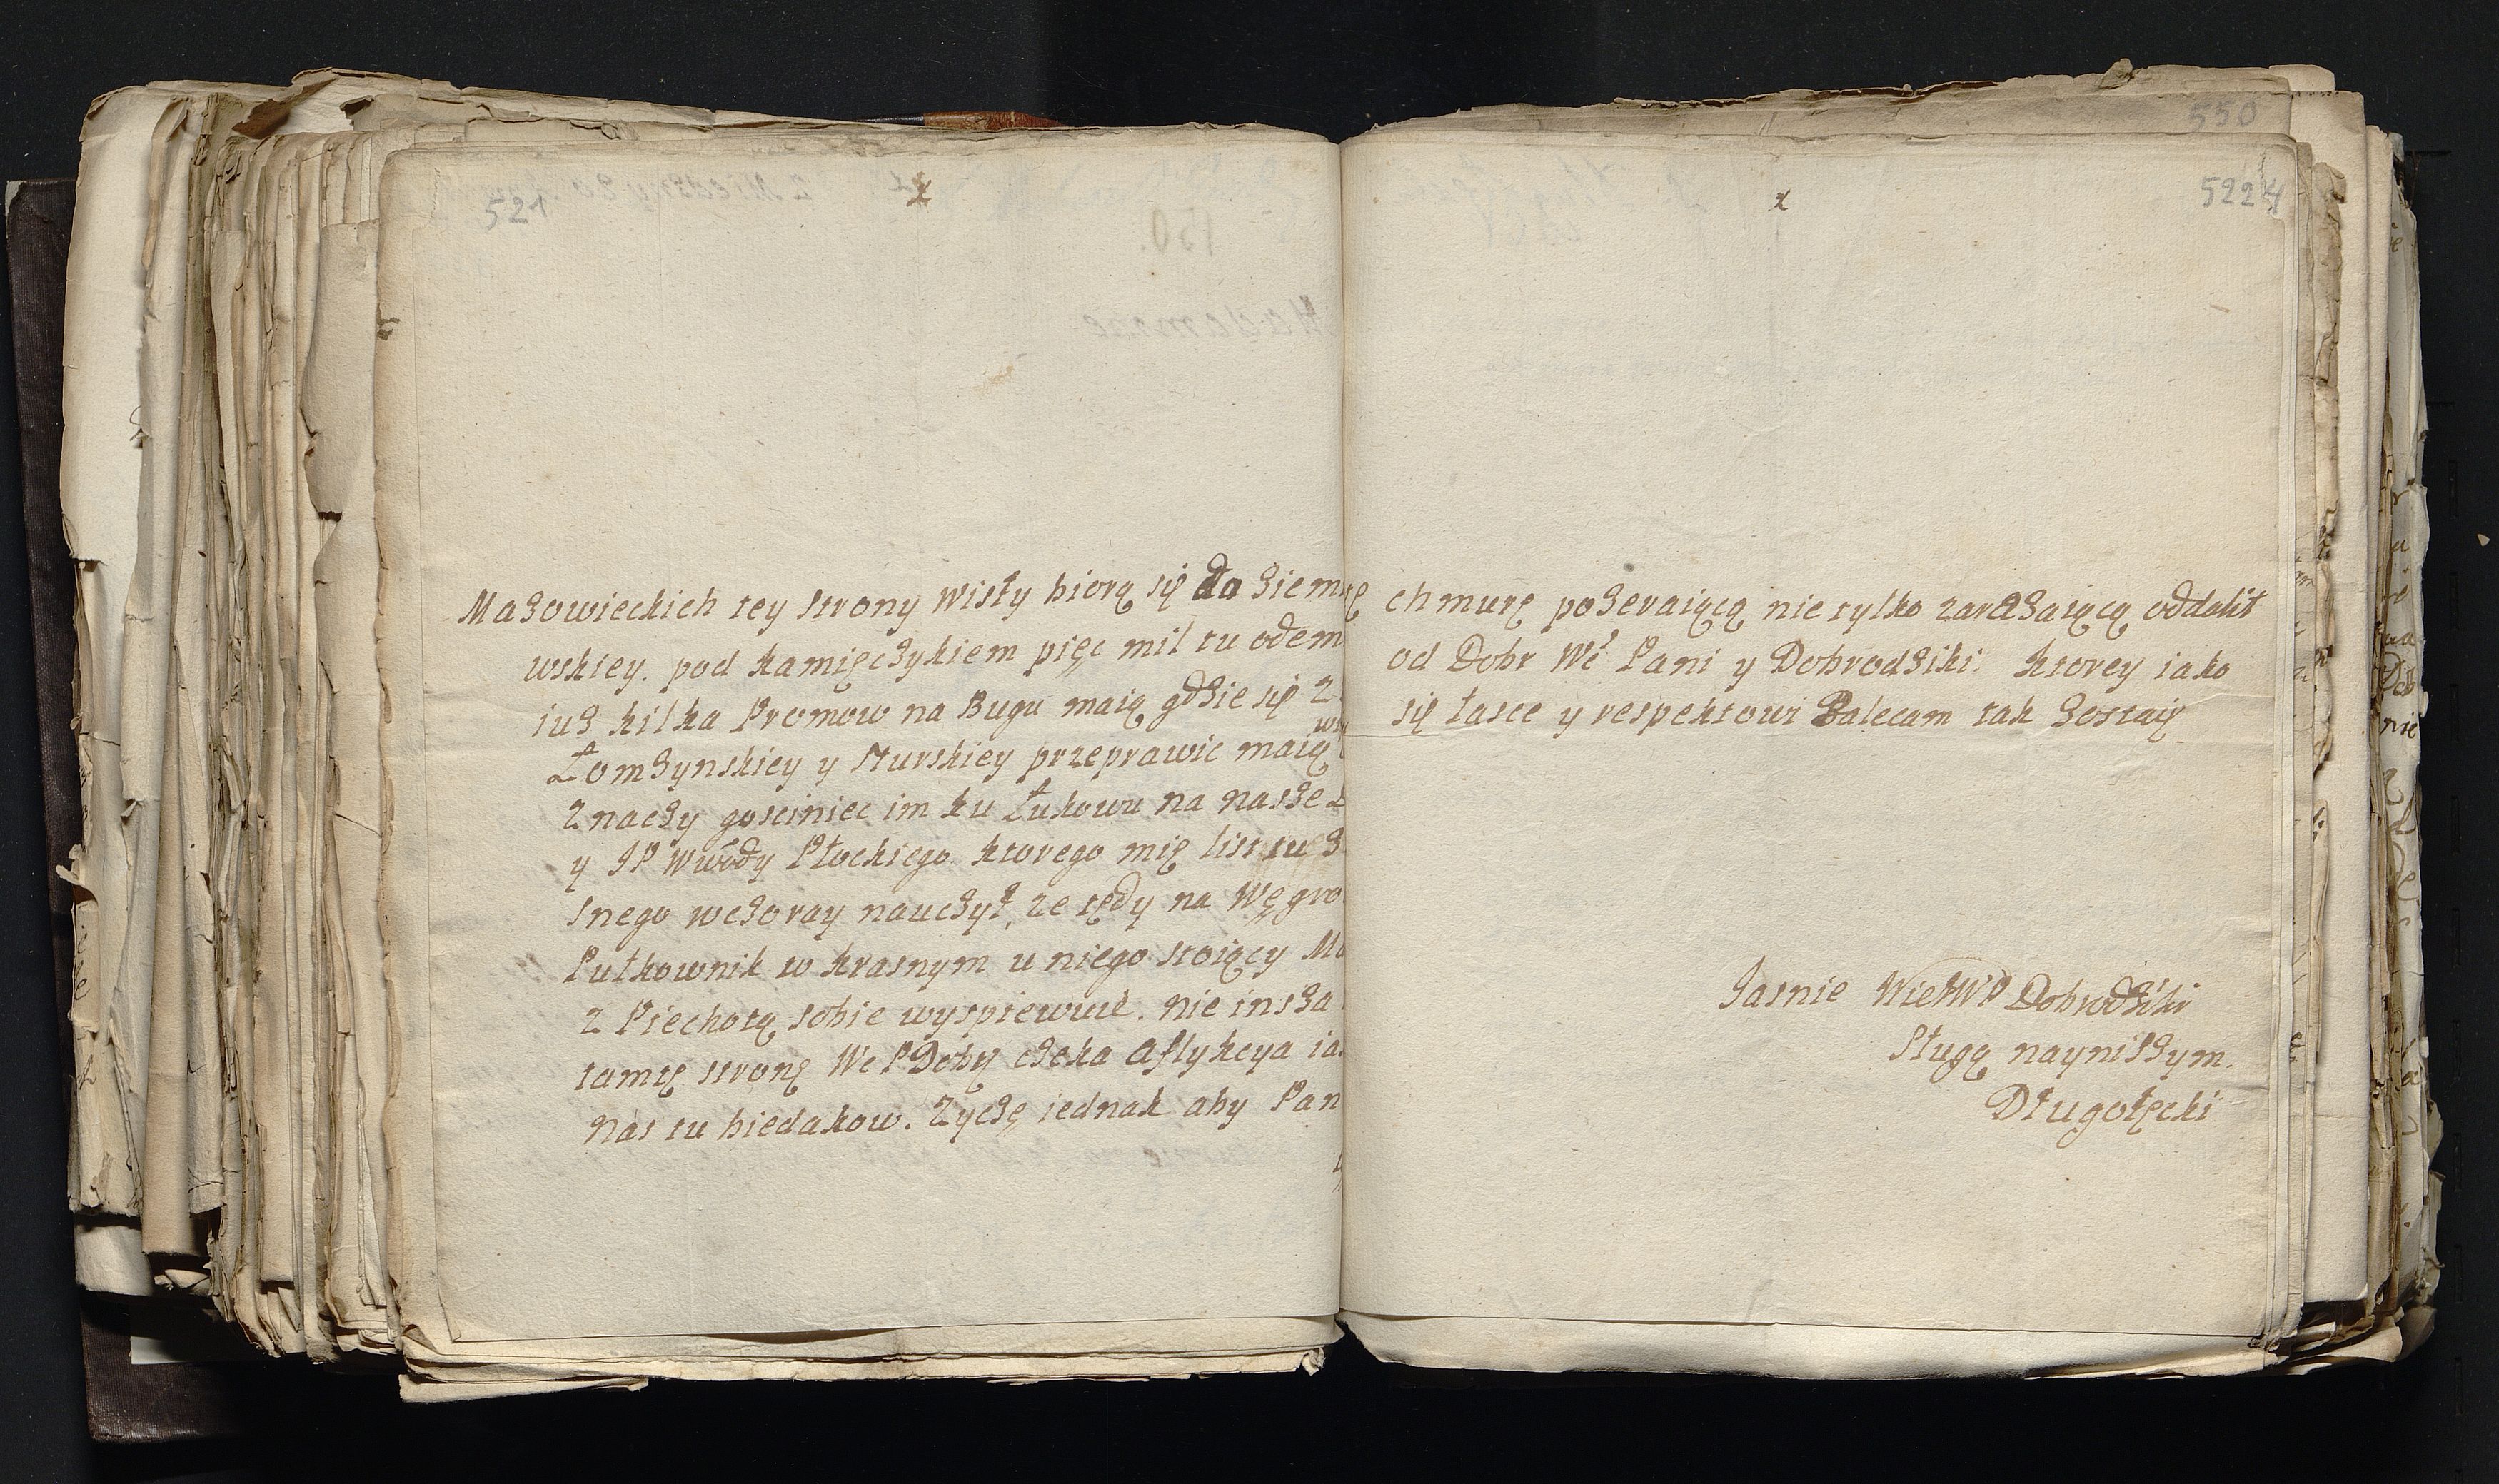 521
x
Mazowieckich tey strony Wisły biorą się do Ziem
wskiey. pod kamięczykiem pięc mil tu odem
iuz kilka Promow na Bugu maią gdzie się z
Łomzynskiey y Nurskiey przeprawic maią
znaczy gosciniec im ku Łukowu na nasze
y JP Wwody Płockiego. ktorego mię list tu
snego wczoray nauczył, ze tędy na Węgro
Pułkownik w krasnym u niego stoiący
z Piechotą sobie wyspiewuie. nie insza
tamtę stronę We PDobry czeka aflykcya ia
nas tu biedakow. Zyczę iednak aby Pan
550
522
x
chmurę pozeraiącą nie tylko zarazaiącą oddalił
od Dobr We Pani y Dobrodziki. ktorey iako
się łasce y respektowi Zalecam tak Zostaię
Jasnie WielWP Dobrodziki
Sługą nayniszym.
Długołęcki